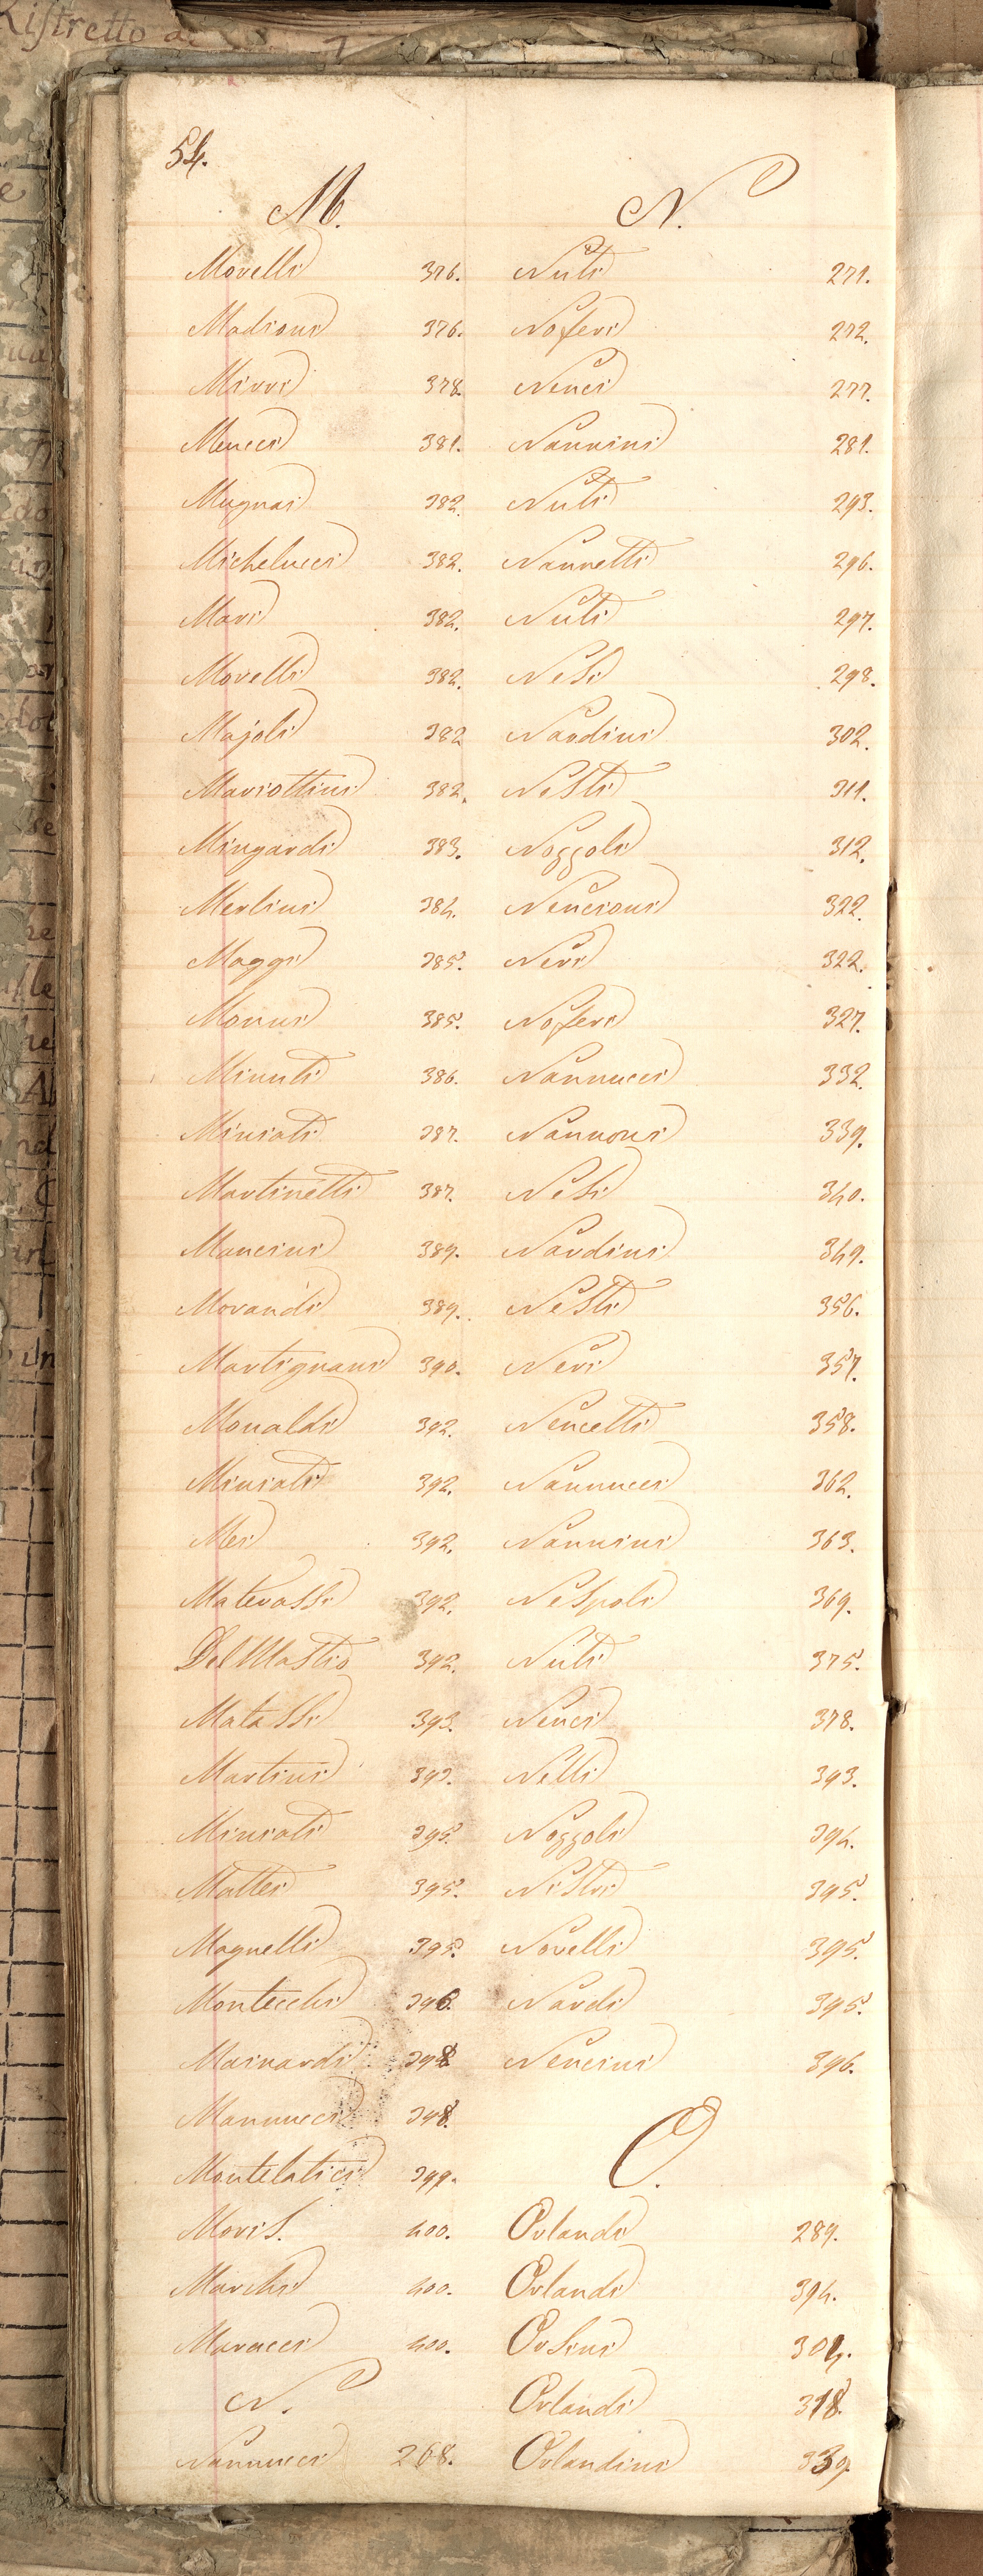 Ristretto
54.
M.
Morelli 376.
Madioni 376.
Mirri 378.
Meucci 381.
Mugnai 382.
Michelucci 382.
Mari 382.
Morelli 382.
Majoli 382
Mariottini 382.
Mingardi 383.
Merlini 384.
Maggi 385.
Monni 385.
Minuti 386.
Miniati 387.
Martinetti 387.
Mancini 389.
Morandi 389.
Martignani 390.
Monaldi 392.
Miniati 392.
Mei 392.
Materassi 392.
Del Mastio 392.
Matassi 393.
Martini 393.
Miniati 395.
Mattei 395.
Magnelli 395.
Montecchi 396.
Mainardi 398
Mannucci 398.
Montelatici 399.
Moris. 400.
Marchi 400.
Maracci 400.
N.
Nannucci 268.
N.
Nuti 271.
Noferi 272.
Nenci 277.
Nannini 281.
Nuti 293.
Nannetti 296.
Nuti 297.
Nesi 298.
Nardini 302.
Nesti 311.
Nozzoli 312.
Nencioni 322.
Neri 322.
Noferi 327.
Nannucci 332.
Nannoni 339.
Nesi 340.
Nardini 349.
Nesti 356.
Neri 357.
Nencetti 358.
Nannucci 362.
Nannini 363.
Nespoli 369.
Nuti 375.
Nenci 378.
Nelli 393.
Nozzoli 394.
Nistri 395.
Novelli 395.
Nardi 395.
Nencini 396.
O.
Orlandi 289.
Orlandi 394.
Orsini 304.
Orlandi 318.
Orlandini 339.